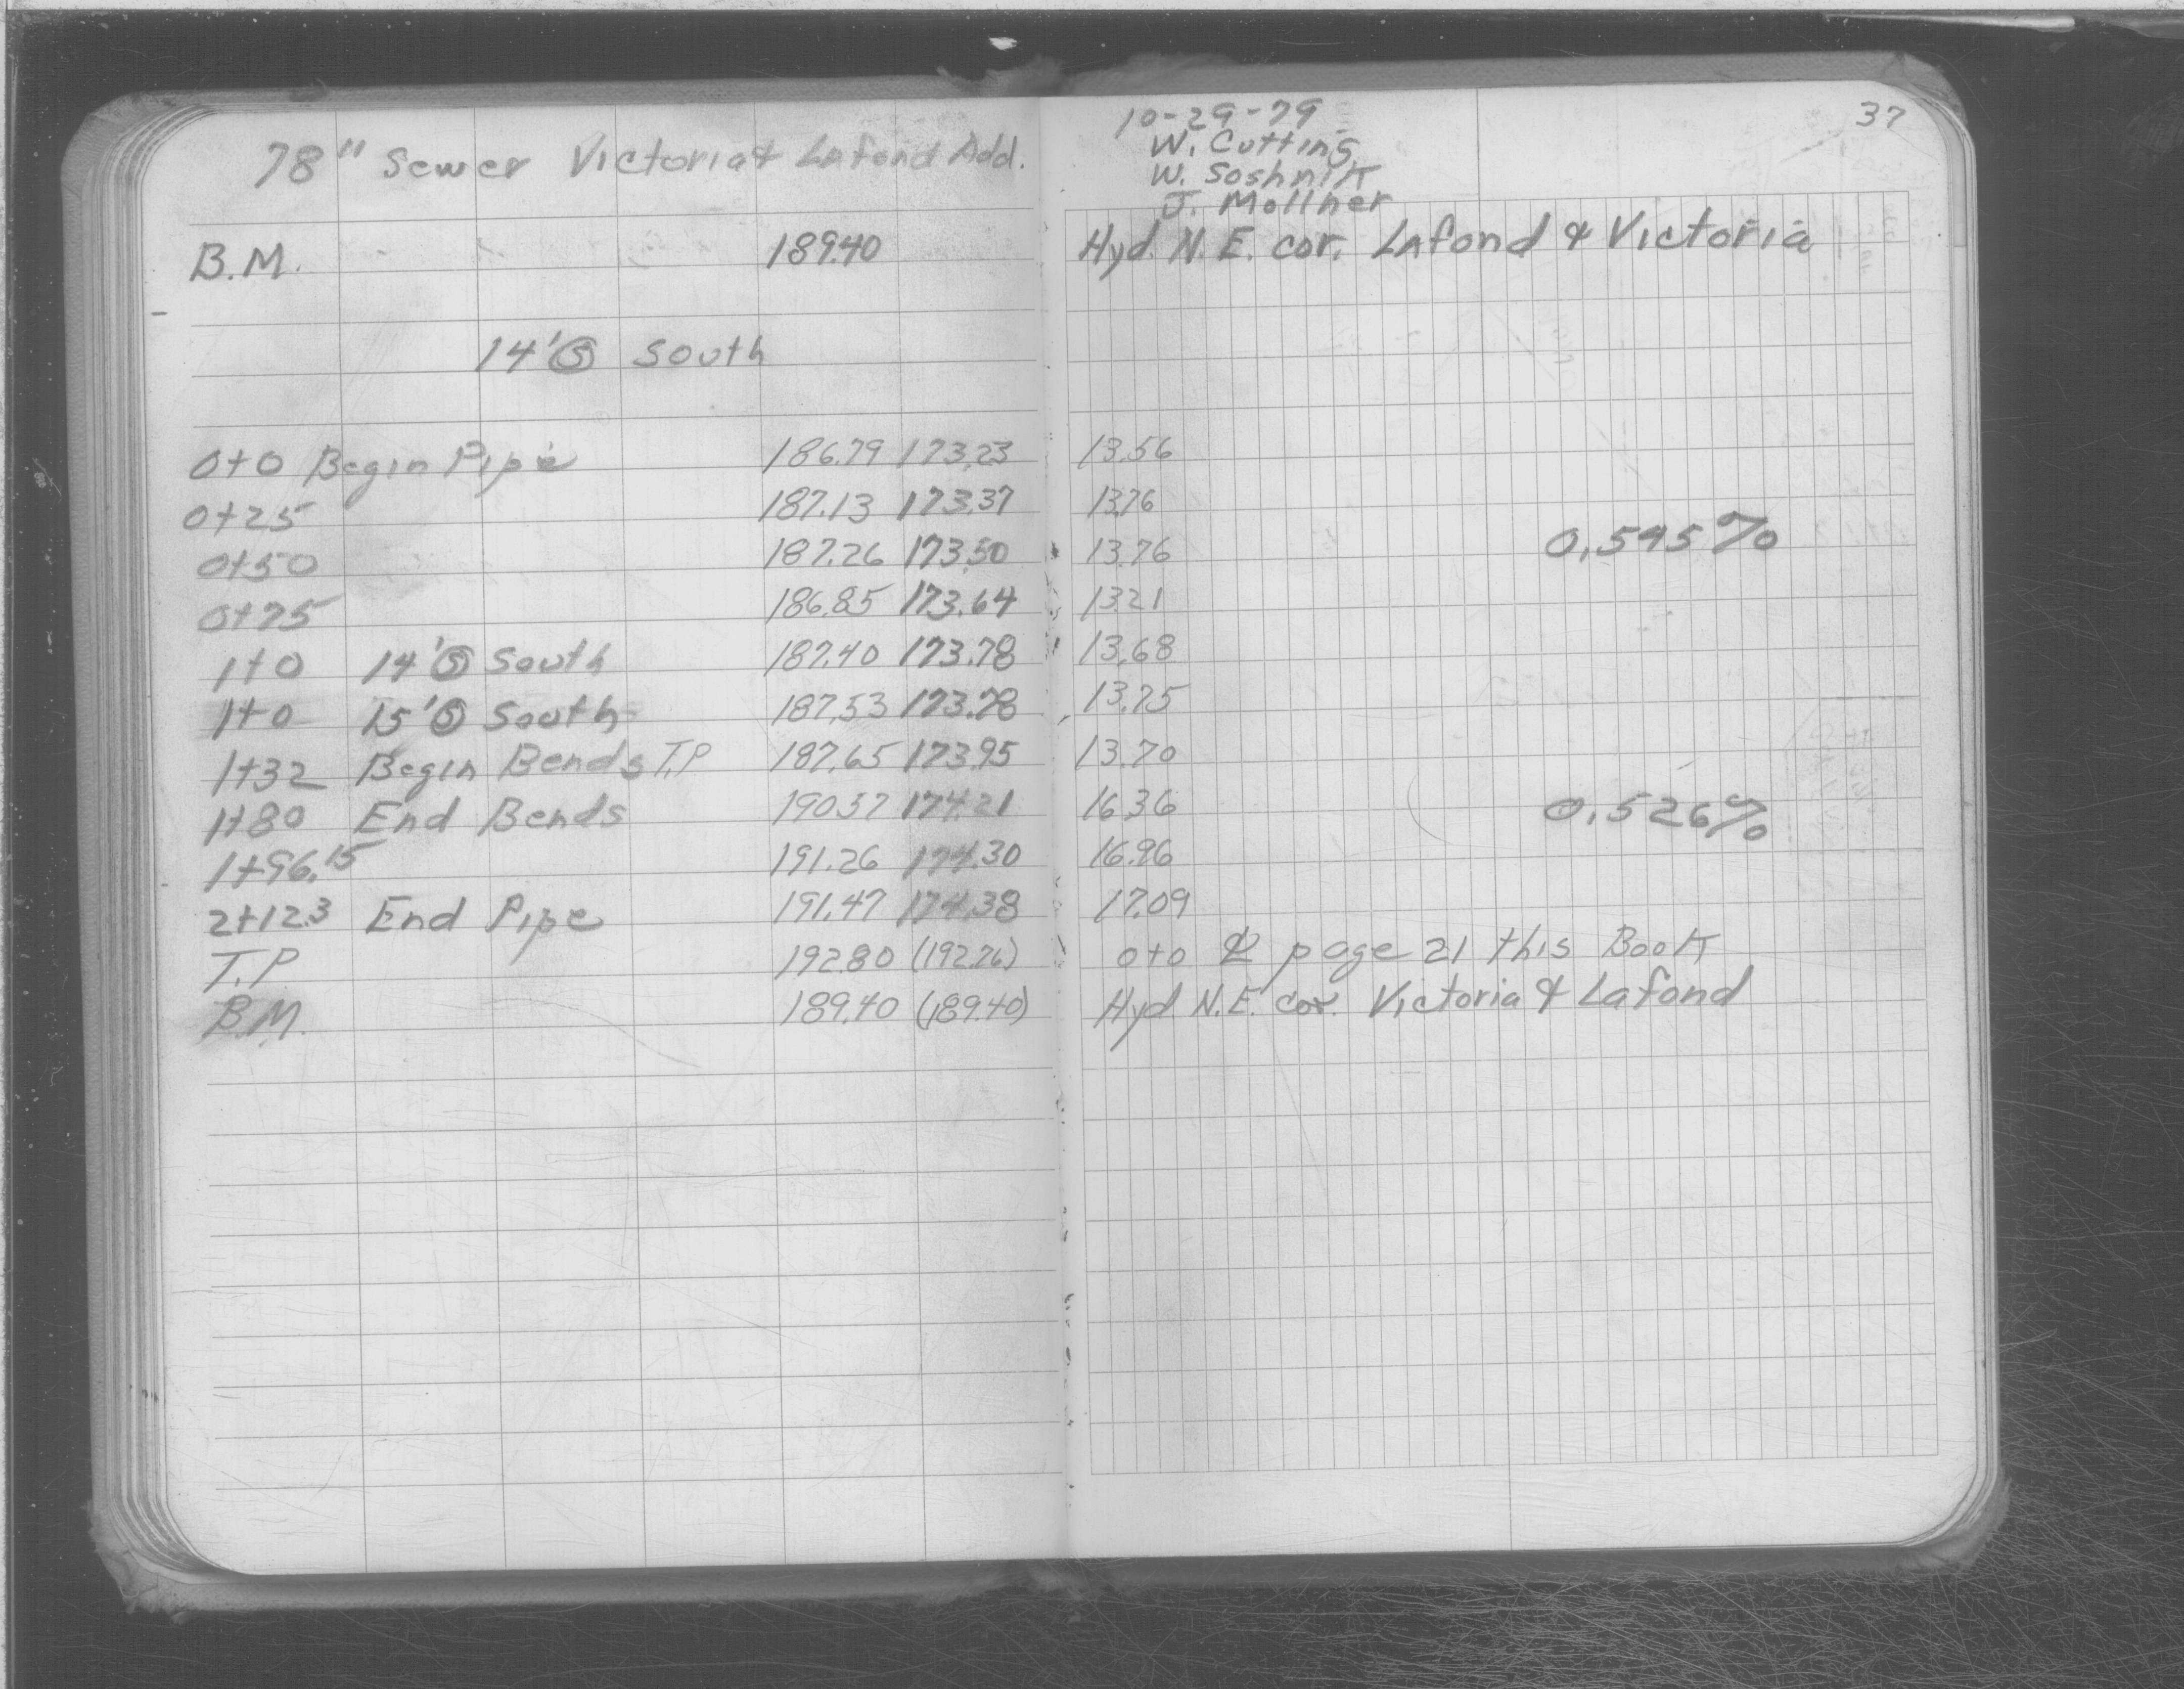 78" Sewer Victoria & Lafond Add.
B.M. 189.40
14' Ⓢ South
0+0 Begin Pipe 186.79 173.23
0+25 187.13 173.37
0+50 187.26 173.50
0+75 186.85 173.64
1+0 14' Ⓢ South 187.40 173.78
1+0 15' Ⓢ South 187.53 173.78
1+32 Begin Bends T.P 187.65 173.95
1+80 End Bends 190.57 174.21
1+96.15 191.26 174.30
2+12.3 End Pipe 191.47 174.38
T.P 192.80 (192.76)
B.M. 189.40 (189.40)
37
10-29-79
W. Cutting
W. Soshnik
J. Mollner
Hyd. N.E. cor. Lafond & Victoria
13.56
13.76
0.545%
13.76
13.21
13.68
13.75
13.70
16.36
0.526%
16.96
17.09
0+0 ℄ page 21 this Book
Hyd N.E. cor. Victoria & Lafond